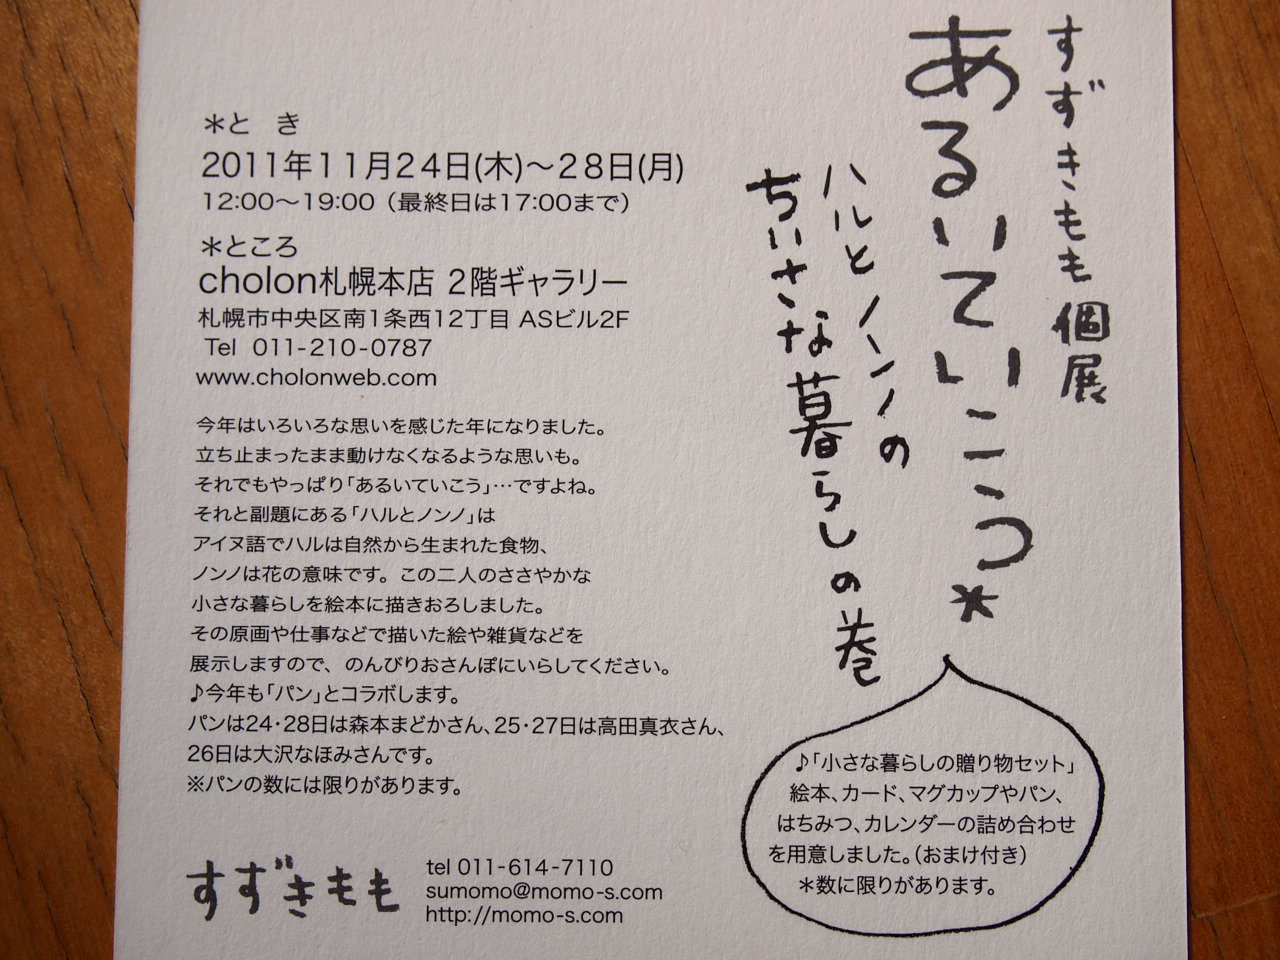 すずきもも 個展
あるいていこう*
ハルとノンノの
ちいさな暮らしの巻
＊と　き
2011年11月24日(木)〜28日(月)
12:00〜19:00（最終日は17:00まで）
＊ところ
cholon札幌本店 2階ギャラリー
札幌市中央区南1条西12丁目 ASビル2F
Tel 011-210-0787
www.cholonweb.com
今年はいろいろな思いを感じた年になりました。
立ち止まったまま動けなくなるような思いも。
それでもやっぱり「あるいていこう」…ですよね。
それと副題にある「ハルとノンノ」は
アイヌ語でハルは自然から生まれた食物、
ノンノは花の意味です。この二人のささやかな
小さな暮らしを絵本に描きおろしました。
その原画や仕事などで描いた絵や雑貨などを
展示しますので、のんびりおさんぽにいらしてください。
♪今年も「パン」とコラボします。
パンは24・28日は森本まどかさん、25・27日は高田真衣さん、
26日は大沢なほみさんです。
※パンの数には限りがあります。
♪「小さな暮らしの贈り物セット」
絵本、カード、マグカップやパン、
はちみつ、カレンダーの詰め合わせ
を用意しました。（おまけ付き）
＊数に限りがあります。
すずきもも
tel 011-614-7110
sumomo@momo-s.com
http://momo-s.com